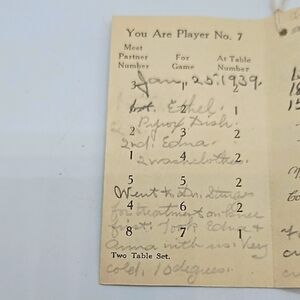 You Are Player No. 7
Meet Partner Number
For Game
At Table Number
3 1 2
Jan, 25. 1939.
1st. Ethel.
2 1
Pyrex Dish.
3 2
2nd. Edna.
4 2
2 washclothes.
5 5 2
Went to Dr.
4 6 2
for treatment on knee
first. Took Edna &
8 7 1
Anna with us. Very
Two Table Set.
cold. 10 degrees.